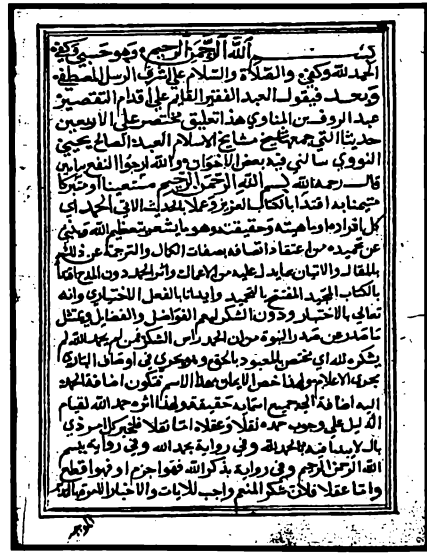 بسم الله الرحمن الرحيم وهو حسبي وكفى
الحمد لله وكفى والصلاة والسلام على اشرف الرسل المصطفى
وبعد فيقول العبد الفقير القائم على اقدام التقصير
عبد الروف بن المناوي هذا تعليق مختصر على الاربعين
حديثا التي جمعها شيخ مشايخ الاسلام العبد الصالح يحيى
النووي سالني فيه بعض الاخوان والله ارجوا النفع
قال رحمه الله بسم الله الرحمن الرحيم مستعينا او متبركا
متيمنا به اقتداء بالكتاب العزيز وعملا بالحديث الاتي الحمد اي
كل افراده او ماهيته وحقيقته وهو ما يشعر بتعظيم الله
عن تحميده من اعتقاد اتصافه بصفات الكمال والترجمة عن ذلك
بالمقال والاتيان بما يدل عليه من الاعمال واثر الحمد دون المدح
بالكتاب المجيد المفتتح بالتحميد وايذانا بالفعل الاختياري وانه
تعالى بالاختيار ودون الشكر ليعم الفواضل والفضايل
ما صدر عن صدر النبوة من ان الحمد راس الشكر فمن لم يحمد الله لم
يشكره لله اي مختص للمعبود بالحق وهو يجري في اوصاف الباري
مجرى الاعلام ولهذا خص الايمان بهذا الاسم فتكون اضافة الحمد
اليه اضافة الى جميع اسمايه حقيقة ولهذا اثره حمد الله لقيام
الدليل على وجوب حمده نقلا وعقلا اما نقلا فلخبر كل امر ذي
بال لا يبدا فيه بالحمد لله وفي رواية بحمد الله وفي رواية ببسم
الله الرحمن الرحيم وفي رواية بذكر الله فهو اجزم او فهو اقطع
واما عقلا فلان شكر المنعم واجب للايات والاخبار